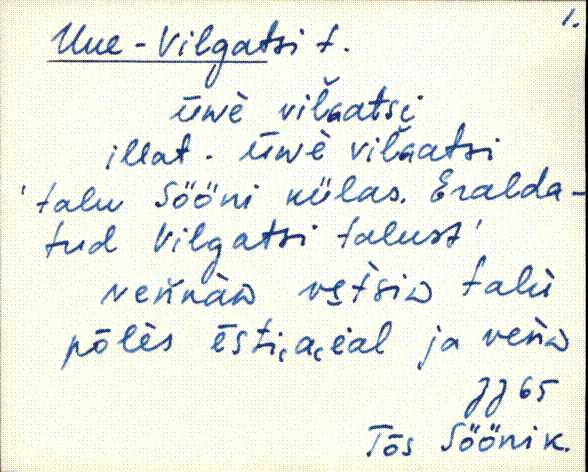 1.
Uue-Vilgatsi t.
ūwè vil̆ɢatsi
illat. ūwè vil̆ɢatsi
'talu Sööni külas. Eralda-
tud Vilgatsi talust'
ven̆nàᴅ vet̀siᴅ talù
põlès ēsti,a,èal ja veǹᴅ
JJ 65
Tõs Sööni k.